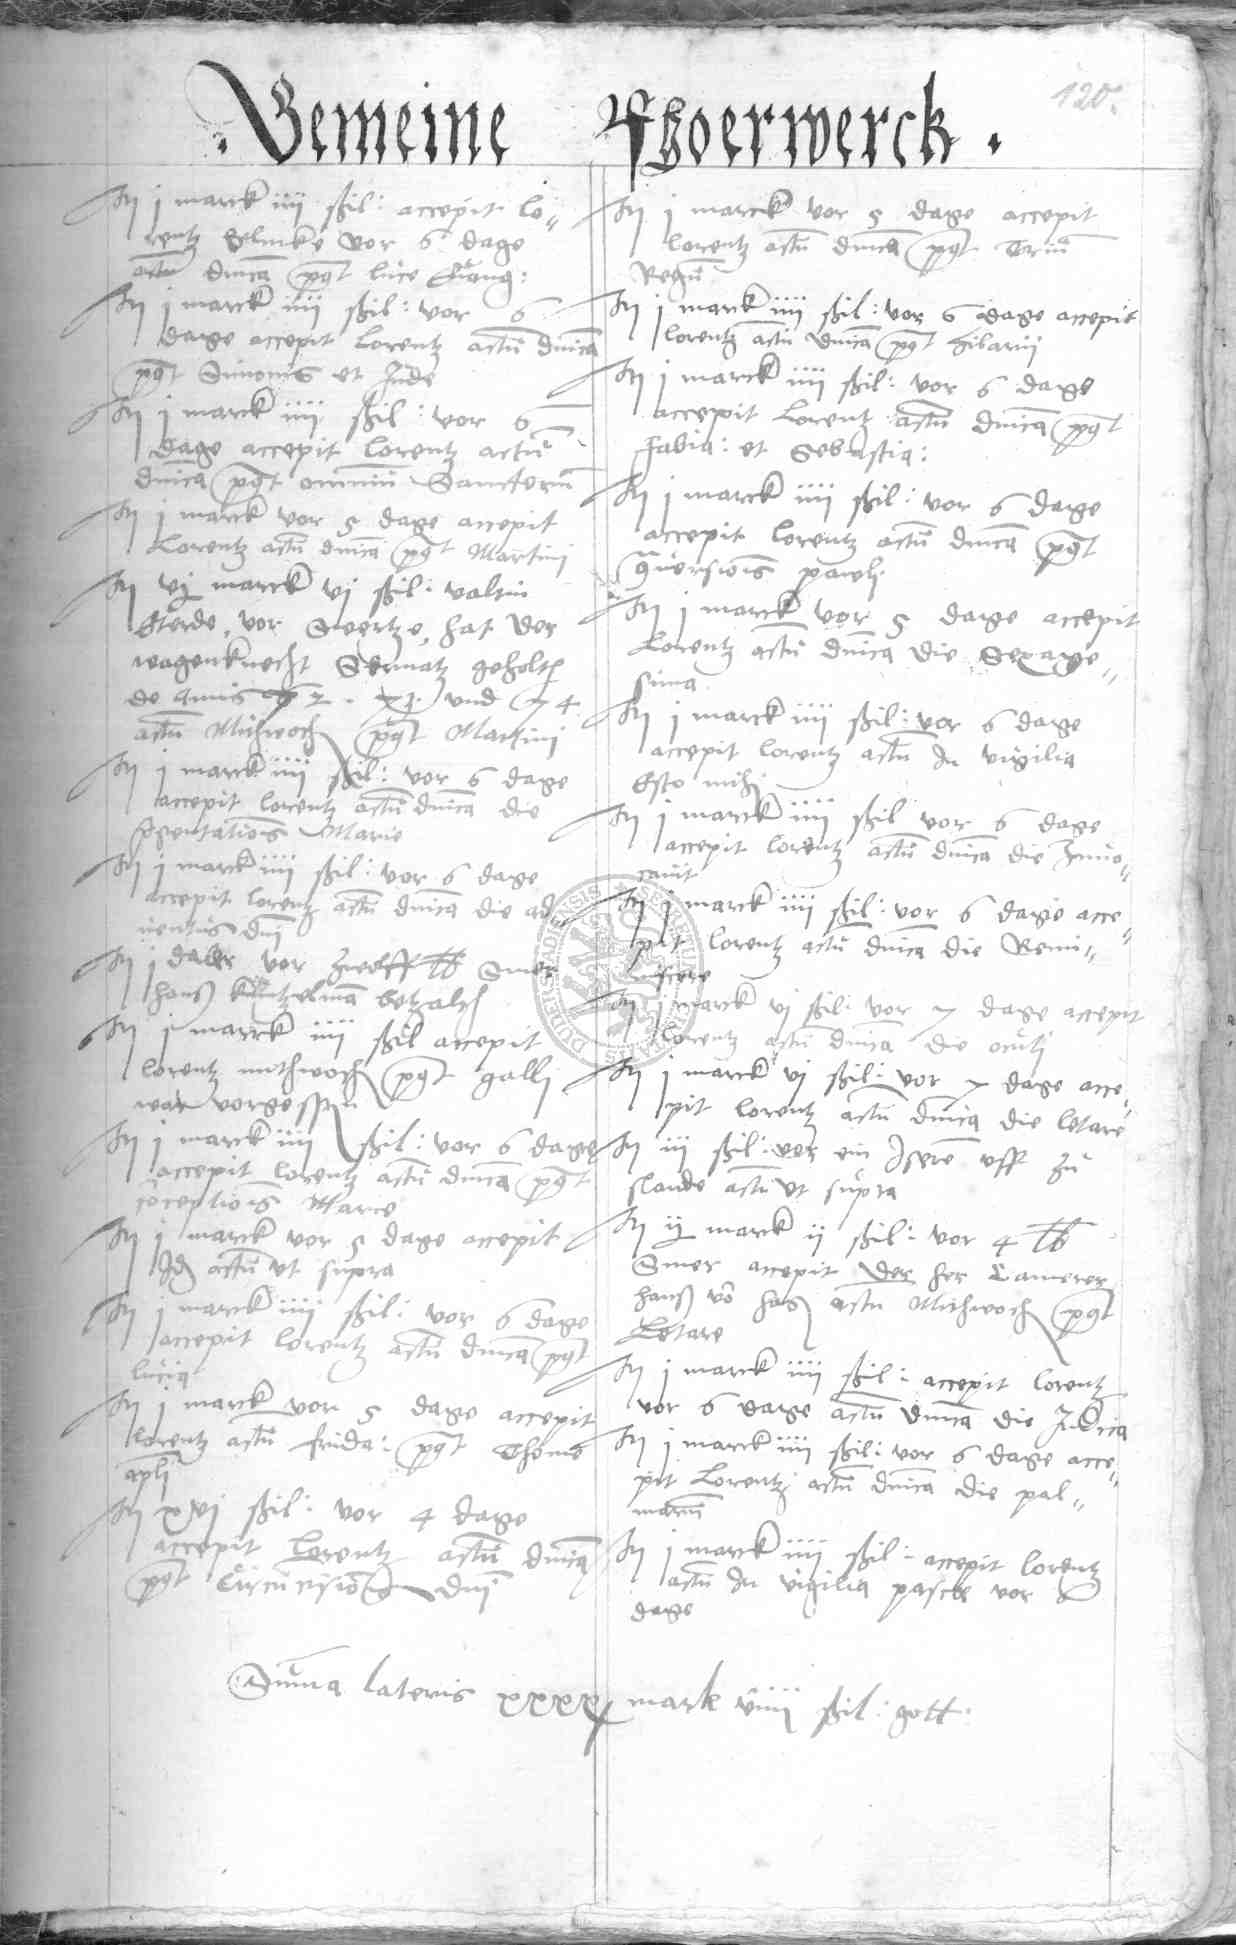 120.
. Gemeine Fhoerwerck .
It j marck iiii ßil: accepit lo-
rentz Selmke vor 6 dage
actu dnica pqt luce Evang:
It j marck iiii ßil: vor 6
dage accepit Lorentz actu dnica
pqt Simonis et Jude
It j marck iiii ßil: vor 6
dage accepit lorentz actu
dnica pqt omniu Sanctoru
It j marck vor 5 dage accepit
Lorentz actu dnica pqt Martini
It vj marck vj ßil: valtin
Eterde, vor Swertze, hat der
wagenknecht geholt
de und 74
actu Mithwoch pqt Martini
It j marck iiii ßil: vor 6 dage
accepit lorentz actu dnica die
pñtationis Marie
It j marck iiii ßil: vor 6 dage
accepit lorentz actu dnica die ad-
uentus dni
It j vor lb Smer
hanß betzalt
It j marck iiii ßil accepit
lorentz mithwoch pqt galli
war vorgessen
It j marck iiii ßil: vor 6 dage
accepit lorentz actu dnica pqt
coceptiois Marie
It j marck vor 5 dage accepit
Ide actu ut supra
It j marck iiii ßil: vor 6 dage
accepit lorentz actu dnica pqt
lucia
It j marck vor 5 dage accepit
lorentz actu frida: pqt Thome
apli
It xvj ßil: vor 4 dage
accepit Lorentz actu dnica
pqt Circucisiois dni
It j marck vor 5 dage accepit
lorentz actu dnica pqt Triu
Regu
It j marck iiii ßil: vor 6 dage accepit
lorentz actu dnica pqt hilarii
It j marck iiii ßil: vor 6 dage
accepit Lorentz actu dnica pqt
Fabia: et Sebastia:
It j marck iiii ßil: vor 6 dage
accepit lorentz actu dnica pqt
couersiois pauli
It j marck vor 5 dage accepit
Lorentz actu dnica die Sexage-
sima
It j marck iiii ßil: vor 6 dage
accepit lorentz actu In vigilia
Esto mihi
It j marck iiii ßil vor 6 dage
accepit lorentz actu dnica die Inuo-
cauit
It j marck iiii ßil: vor 6 dage acce-
pit lorentz actu dnica die Remi-
niscere
It j marck vj ßil: vor 7 dage accepit
lorentz actu dnica die oculi
It j marck vj ßil: vor 7 dage acce-
pit lorentz actu dnica die letare
It iii ßil: vor ein Isern uff zu
slande actu ut supra
It ij marck ij ßil: vor 4 lb
Smer accepit der her Camerer
hanß vo actu Mithwoch pqt
Letare
It j marck iiii ßil: accepit lorentz
vor 6 dage actu dnica die Judica
It j marck iiii ßil: vor 6 dage acce-
pit Lorentz actu dnica die pal-
maru
It j marck iiii ßil: accepit lorentz
actu In vigilia pasce vor 6
dage
Suma lateris xxxx mark viiii ßil: gott: